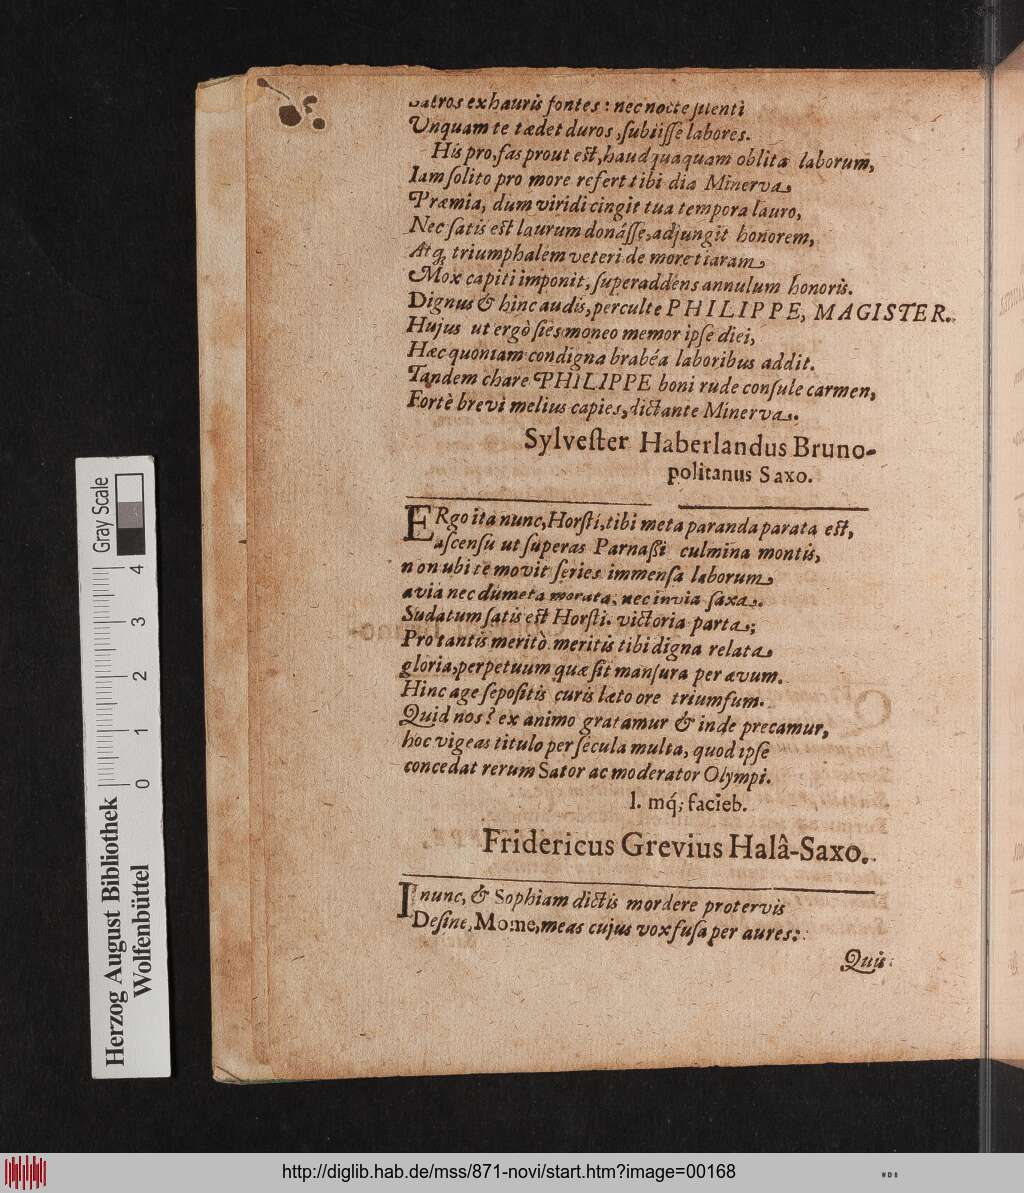 Sacros exhauris fontes: nec nocte silenti
Unquam te tædet duros, subiisse labores.
His pro, fas prout est, haudquaquam oblita laborum,
Iam solito pro more refert tibi dia Minerva,
Præmia, dum viridi cingit tua tempora lauro,
Nec satis est laurum donásse, adjungit honorem,
Atq, triumphalem veteri de more tiaram
Mox capiti imponit, superaddens annulum honoris.
Dignus & hinc audis, perculte PHILIPPE, MAGISTER.
Hujus ut ergò sies moneo memor ipse diei,
Hæc quoniam condigna brabéa laboribus addit.
Tandem chare PHILIPPE boni rude consule carmen,
Fortè brevi melius capies, dictante Minerva.
Sylvester Haberlandus Bruno-
politanus Saxo.
ERgo ita nunc, Horsti, tibi meta paranda parata est,
ascensu ut superas Parnaßi culmina montis,
non ubi te movit series immensa laborum
avia nec dumeta morata, nec invia saxa.
Sudatum satis est Horsti. victoria parta;
Pro tantis meritò meritis tibi digna relata
gloria, perpetuum quæ sit mansura per ævum.
Hinc age sepositis curis læto ore triumfum.
Quid nos? ex animo gratamur & inde precamur,
hoc vigeas titulo per secula multa, quod ipse
concedat rerum Sator ac moderator Olympi.
l. mq́; facieb.
Fridericus Grevius Halâ-Saxo.
I nunc, & Sophiam dictis mordere protervis
Desine, Mome, meas cujus vox fusa per aures:
Quis
Gray Scale
4
3
2
1
0
Herzog August Bibliothek
Wolfenbüttel
http://diglib.hab.de/mss/871-novi/start.htm?image=00168